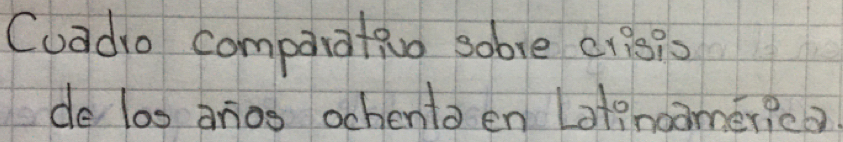 Cuadro comparativo sobre crisis
de los años ochenta en Latinoamérica.